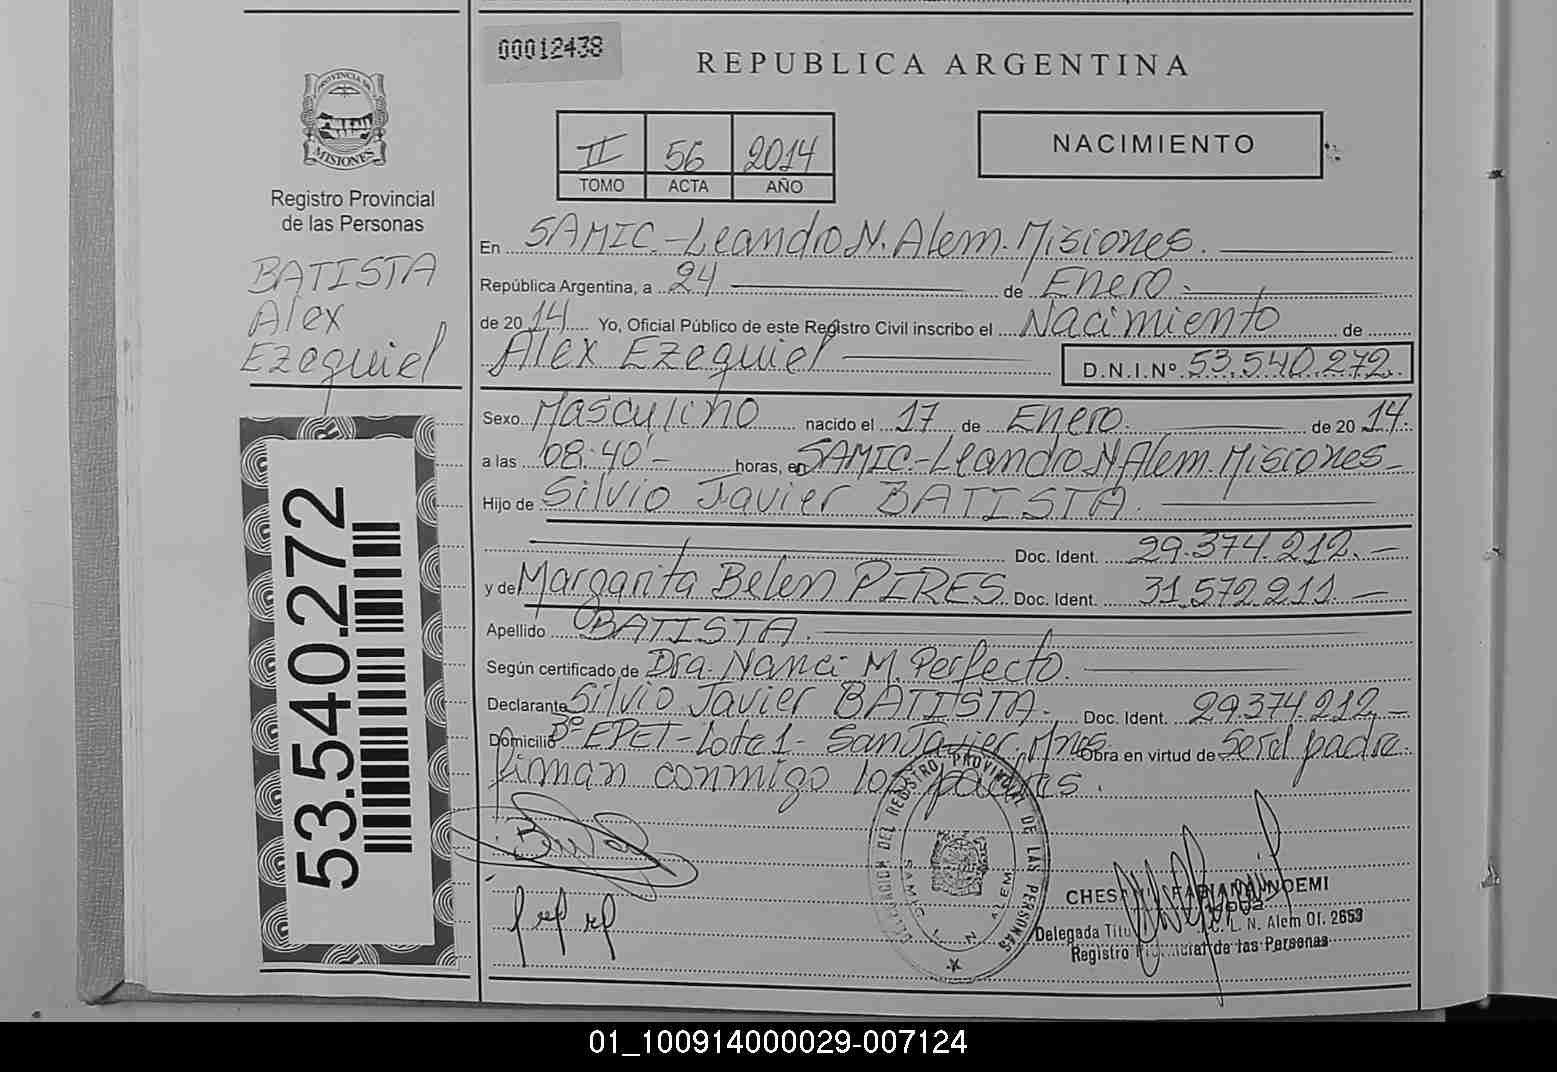 00012438
REPUBLICA ARGENTINA
PROVINCIA DE
MISIONES
Registro Provincial
de las Personas
BATISTA
Alex
Ezequiel
53.540.272
II 56 2014
TOMO ACTA AÑO
NACIMIENTO
En SAMIC.-Leandro N. Alem. Misiones.
República Argentina, a 24 de Enero.
de 2014 Yo, Oficial Público de este Registro Civil inscribo el Nacimiento de
Alex Ezequiel D.N.I.Nº. 53.540.272.
Sexo Masculino nacido el 17 de Enero. de 20 14.
a las 08:40'- horas, en SAMIC-Leandro N Alem. Misiones-
Hijo de Silvio Javier BATISTA.
Doc. Ident. 29.374.212.-
y de Margarita Belen PIRES Doc. Ident. 31.572.211.-
Apellido BATISTA.
Según certificado de Dra. Nanci M. Perfecto.
Declarante Silvio Javier BATISTA. Doc. Ident. 29.374.212.-
Domicilio Bº EPET-Lote 1- San Javier. Mnes Obra en virtud de ser el padre.
firman conmigo los padres.
DELEGACION DEL REGISTRO PROVINCIAL DE LAS PERSONAS
SAMIC L. N. ALEM
NOEMI
Delegada L. N. Alem Of. 2653
Registro de las Personas
01_100914000029-007124